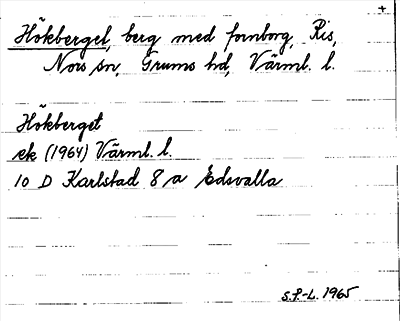 +
Hökberget, berg med fornborg, Ris,
Nors sn, Grums hd, Värml. l.
Hökberget
ek (1964) Värml. l.
10 D Karlstad 8 a Edsvalla
S.F.-L. 1965